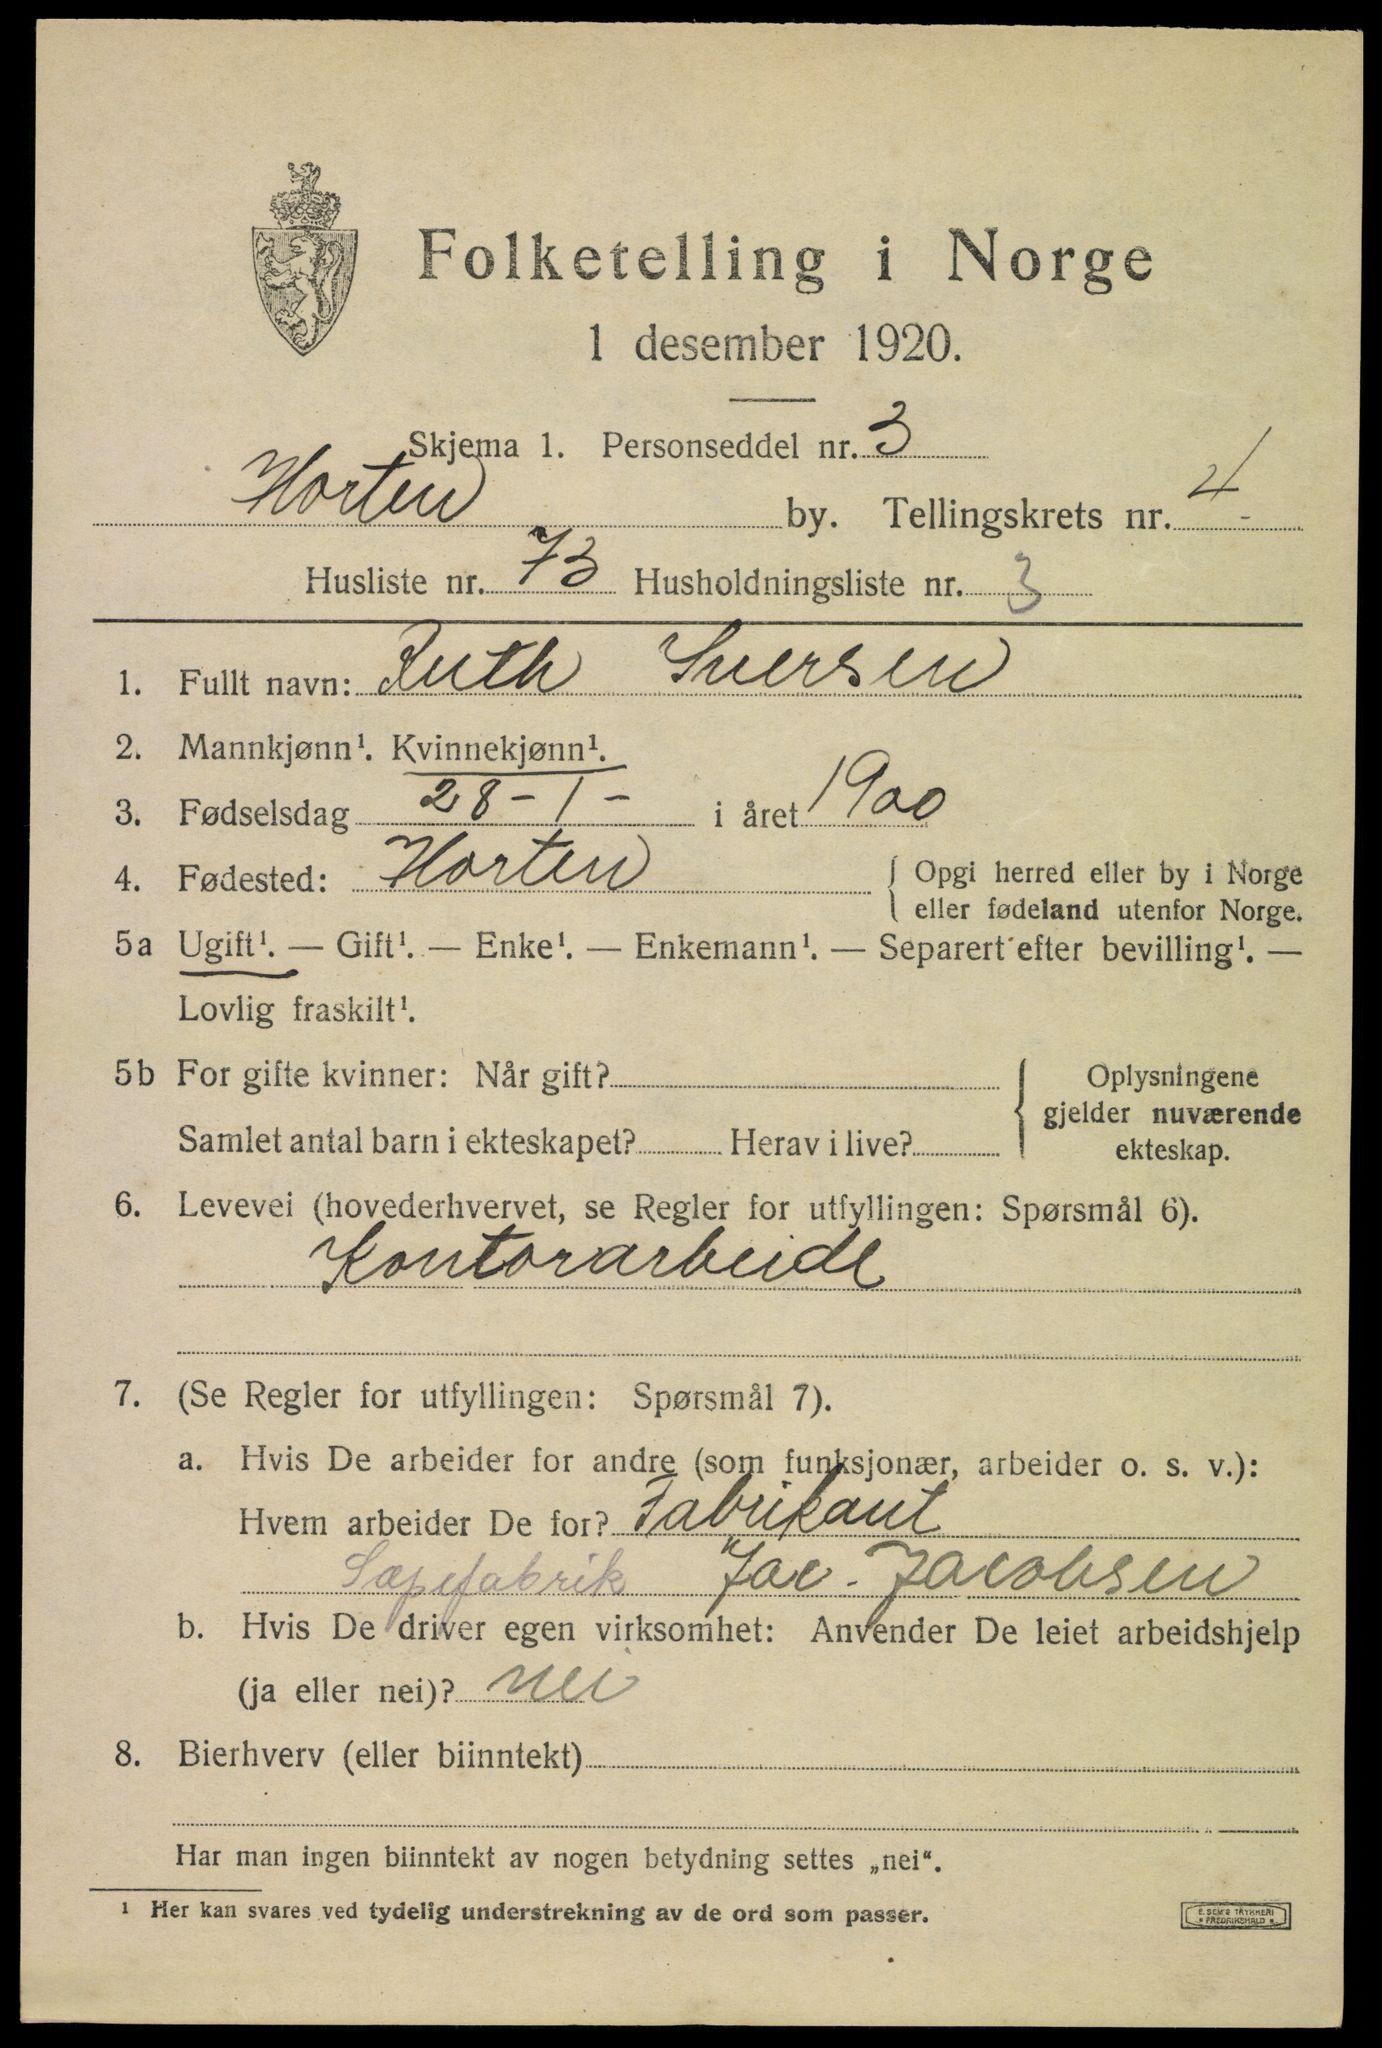 Folketelling i Norge
1 desember 1920.
Skjema 1. Personseddel nr. 3
Horten by. Tellingskrets nr. 4
Husliste nr. 73 Husholdningsliste nr. 3
1. Fullt navn: Ruth Iversen
2. Mannkjønn¹. Kvinnekjønn¹.
3. Fødselsdag 28 - 1 - i året 1900
4. Fødested: Horten { Opgi herred eller by i Norge
eller fødeland utenfor Norge.
5a Ugift¹. — Gift¹. — Enke¹. — Enkemann¹. — Separert efter bevilling¹. —
Lovlig fraskilt¹.
5b For gifte kvinner: Når gift? } Oplysningene
gjelder nuværende
Samlet antal barn i ekteskapet? Herav i live? ekteskap.
6. Levevei (hovederhvervet, se Regler for utfyllingen: Spørsmål 6).
Kontorarbeide
7. (Se Regler for utfyllingen: Spørsmål 7).
a. Hvis De arbeider for andre (som funksjonær, arbeider o. s. v.):
Hvem arbeider De for? Fabrikant
Sæpefabrik Jac. Jacobsen
b. Hvis De driver egen virksomhet: Anvender De leiet arbeidshjelp
(ja eller nei)? nei
8. Bierhverv (eller biinntekt)
Har man ingen biinntekt av nogen betydning settes „nei“.
¹ Her kan svares ved tydelig understrekning av de ord som passer.
E. SEM'S TRYKKERI
FREDRIKSHALD